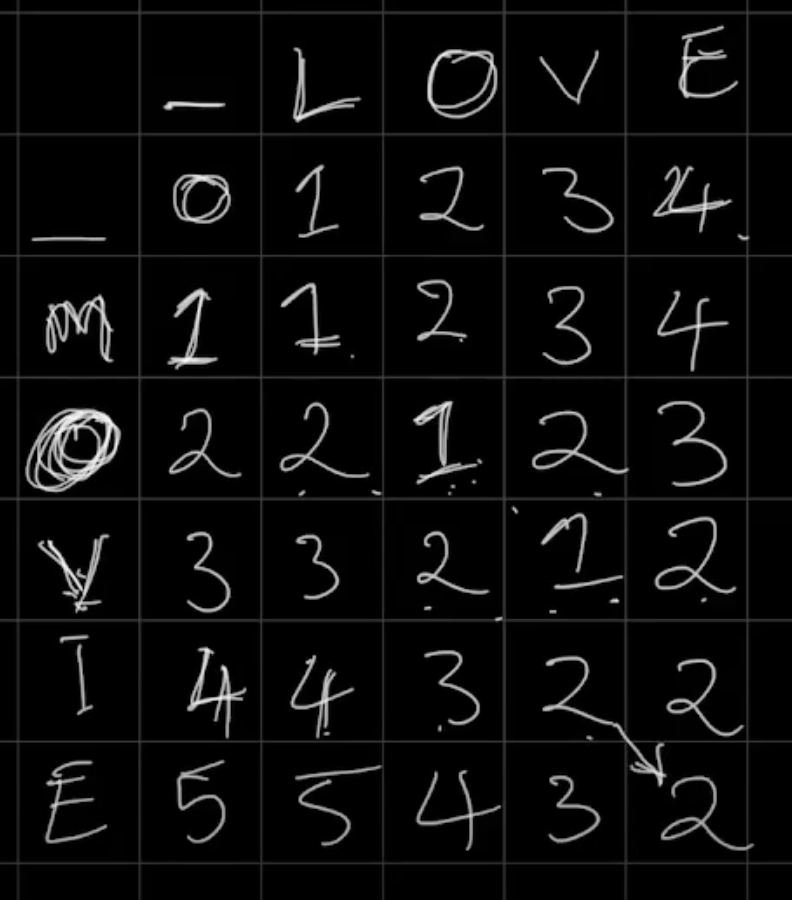 _ L O V E
_ 0 1 2 3 4
M 1 1 2 3 4
O 2 2 1 2 3
V 3 3 2 1 2
I 4 4 3 2 2
E 5 5 4 3 2